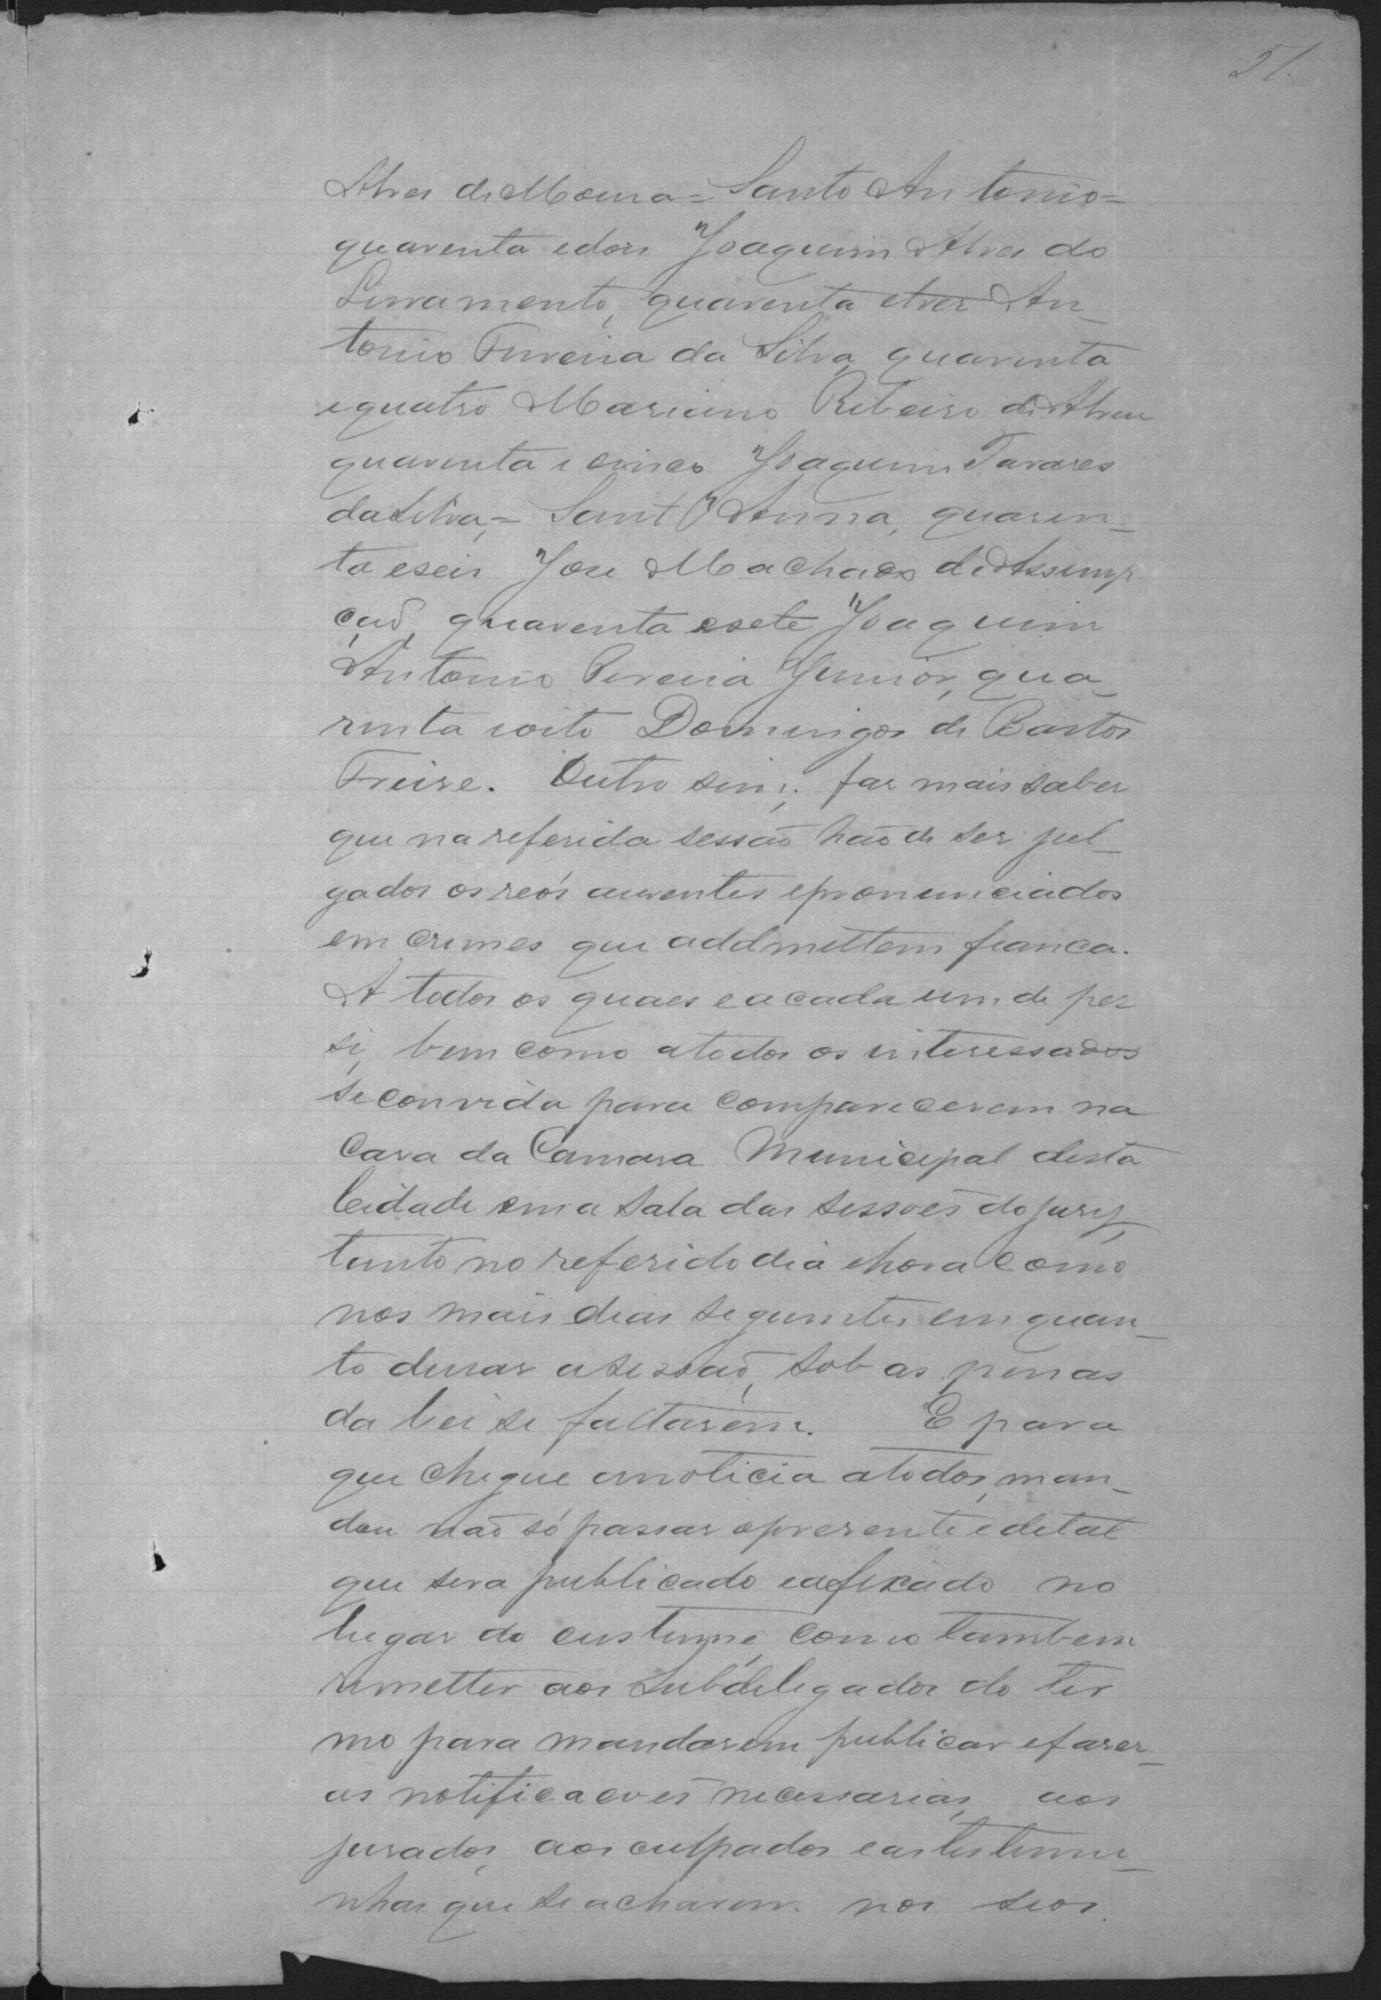 51.
Alves de Moura = Santo Antonio =
quarenta e dois Joaquim Alves do
Livramento, quarenta e tres An_
tonio Ferreira da Silva, quarenta
e quatro Mariano Ribeiro de Abreu
quarenta e cinco Joaquim Tavares
da Silva, = Sant'Anna, quaren_
ta e seis Jose Machado de Assump
ção, quarenta e sete Joaquim
Antonio Pereira Junior, qua_
renta e oito Domingos de Bastos
Freire. Outro sim, faz mais saber
que na referida sessão hão de ser jul_
gados os reós auzentes e pronunciados
em crimes que addmettem fianca.
A todos os quaes e a cada um de per
si, bem como a todos os interessados
se convida para comparecerem na
Caza da Camara Municipal desta
Cidade em a sala das sessões do jury,
tanto no referido dia e hora como
nos mais dias seguintes em quan_
to durar a sessão, sob as penas
da lei se faltarem. E para
que chegue a noticia a todos, man_
dou não só passar o prezente edital
que sera publicado e afixado no
lugar do custume, como tambem
remetter aos Subdelegados do ter
mo para mandarem publicar e fazer_
as notificacoes necessarias, aos
jurados, aos culpados e as testemu_
nhas que se acharem nos seos